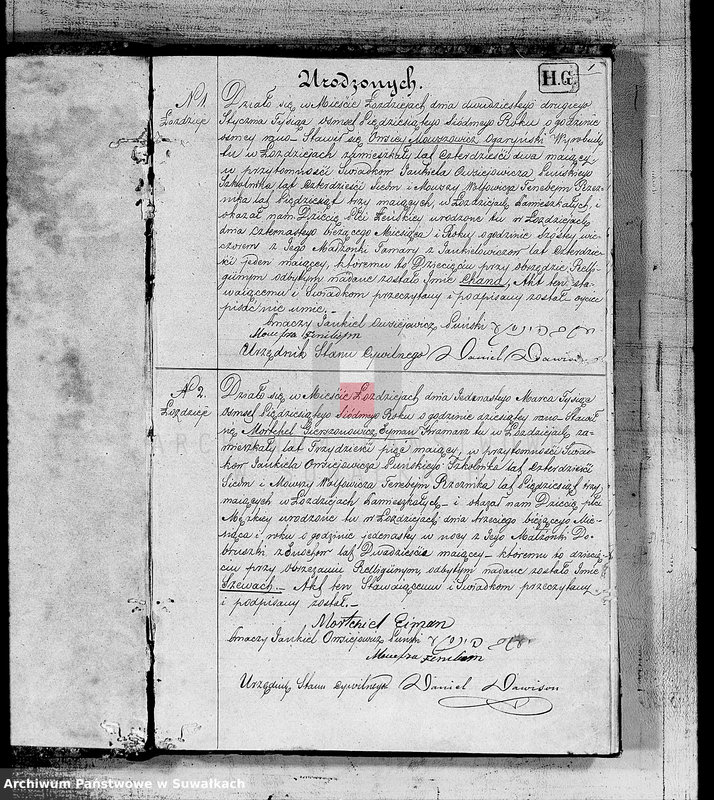 H.G.
1
Urodzonych.
N 1.
Łoździeje
Działo się w Mieście Łoździejach dnia dwudziestego drugiego
Stycznia Tysiąc osmset Pięćdziesiątego Siódmego Roku o godzinie
osmey rano Stawił się Owsiey Mowszowicz Wyrobnik
tu w Łoździejach zamieszkały lat Czterdzieści dwa maiący
w przytomności Swiadkow Jankiela Owsiejowicza Puńskiego
Szkolnika lat Czterdzieści Siedm i Mowszy Wolfowicza Rzez
nika lat Pięćdziesiąt trzy maiących w Łoździejach Zamieszkałych, i
okazał nam Dziecię Płci Żeńskiey urodzone tu w Łoździejach
dnia czternastego bieżącego Miesiąca i Roku o godzinie Szóstey wie
czorem z Jego Małżonki Tamary z Jankielowiczow lat Czterdzie
ści jeden maiącey, ktoremu to Dziecięciu przy obrzędzie Reli
giinym odbytym nadane zostało Jmie Akt ten sta
waiącemu i Swiadkom przeczytany i podpisany został oyciec
pisać nie umie. –
Tmaczy Jankiel Owsiejowicz Puński
Urzędnik Stanu Cywilnego Daniel Dawison
N 2.
Łoździeje
Działo się w Mieście Łoździejach dnia Jedenastey Marca Tysiąc
Osmset Pięćdziesiątego Siódmego Roku o godzinie dziesiątey rano Stawił
się Mortchel Gierszonowicz Eyman Kramarz tu w Łoździejach za
mieszkały lat Trzydzieści pięć maiący, w przytomności Swiad
kow Jankiela Owsiejowicza Puńskiego Szkolnika lat Czterdzieści
Siedm i Mowszy Wolfowicza Rzeznika lat Pięćdziesiąt trzy
maiących w Łoździejach Zamieszkałych – i okazał nam Dziecię płci
Męzkiey urodzone tu w Łoździejach dnia trzeciego bieżącego Mie
siąca i roku o godzinie jedenastey w nocy z Jego Małżonki Do
bruszki z lat Dwadzieścia maiącey – ktoremu to dziecię
ciu przy obrzezaniu Religiinym odbytym nadane zostało Jmie
Szewach. – Akt ten Stawaiącemu i Swiadkom przeczytany
i podpisany został. –
Mortchiel Eiman
Tmaczy Jankiel Owsiejowicz Puński
Urzędnik Stanu Cywilnego Daniel Dawison
Archiwum Państwowe w Suwałkach